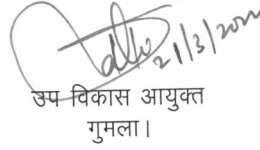 21/3/2022
उप विकास आयुक्त
गुमला।